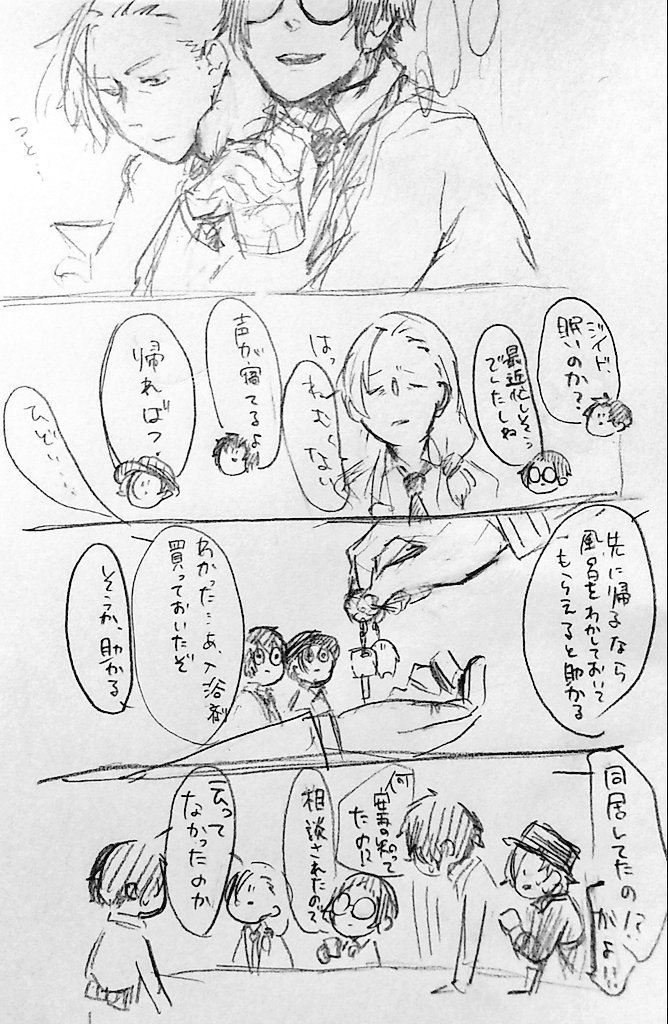 こと…
ジイド、
眠いのか？
最近忙しそう
でしたしね
はっ
ねむくない
声が寝てるよ
帰ればっ
ひどい……
先に帰るなら
風呂をわかしておいて
もらえると助かる
わかった…あ、入浴剤
買っておいたぞ
そうか、助かる
同居してたの!?
がよ!!
何
安吾知って
たの!?
相談されたので
言って
なかったのか